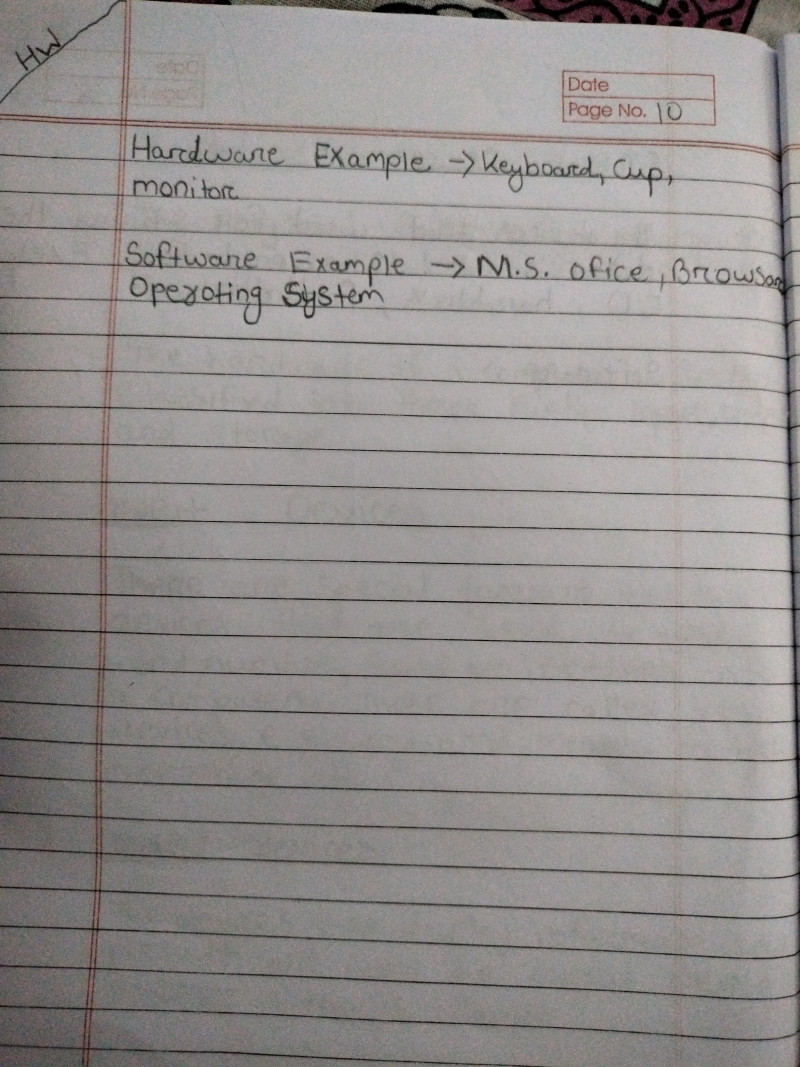 HW
Date
Page No. 10
Hardware Example → Keyboard, Cup,
monitor
Software Example → M.S. ofice, Browsor
Operoting System